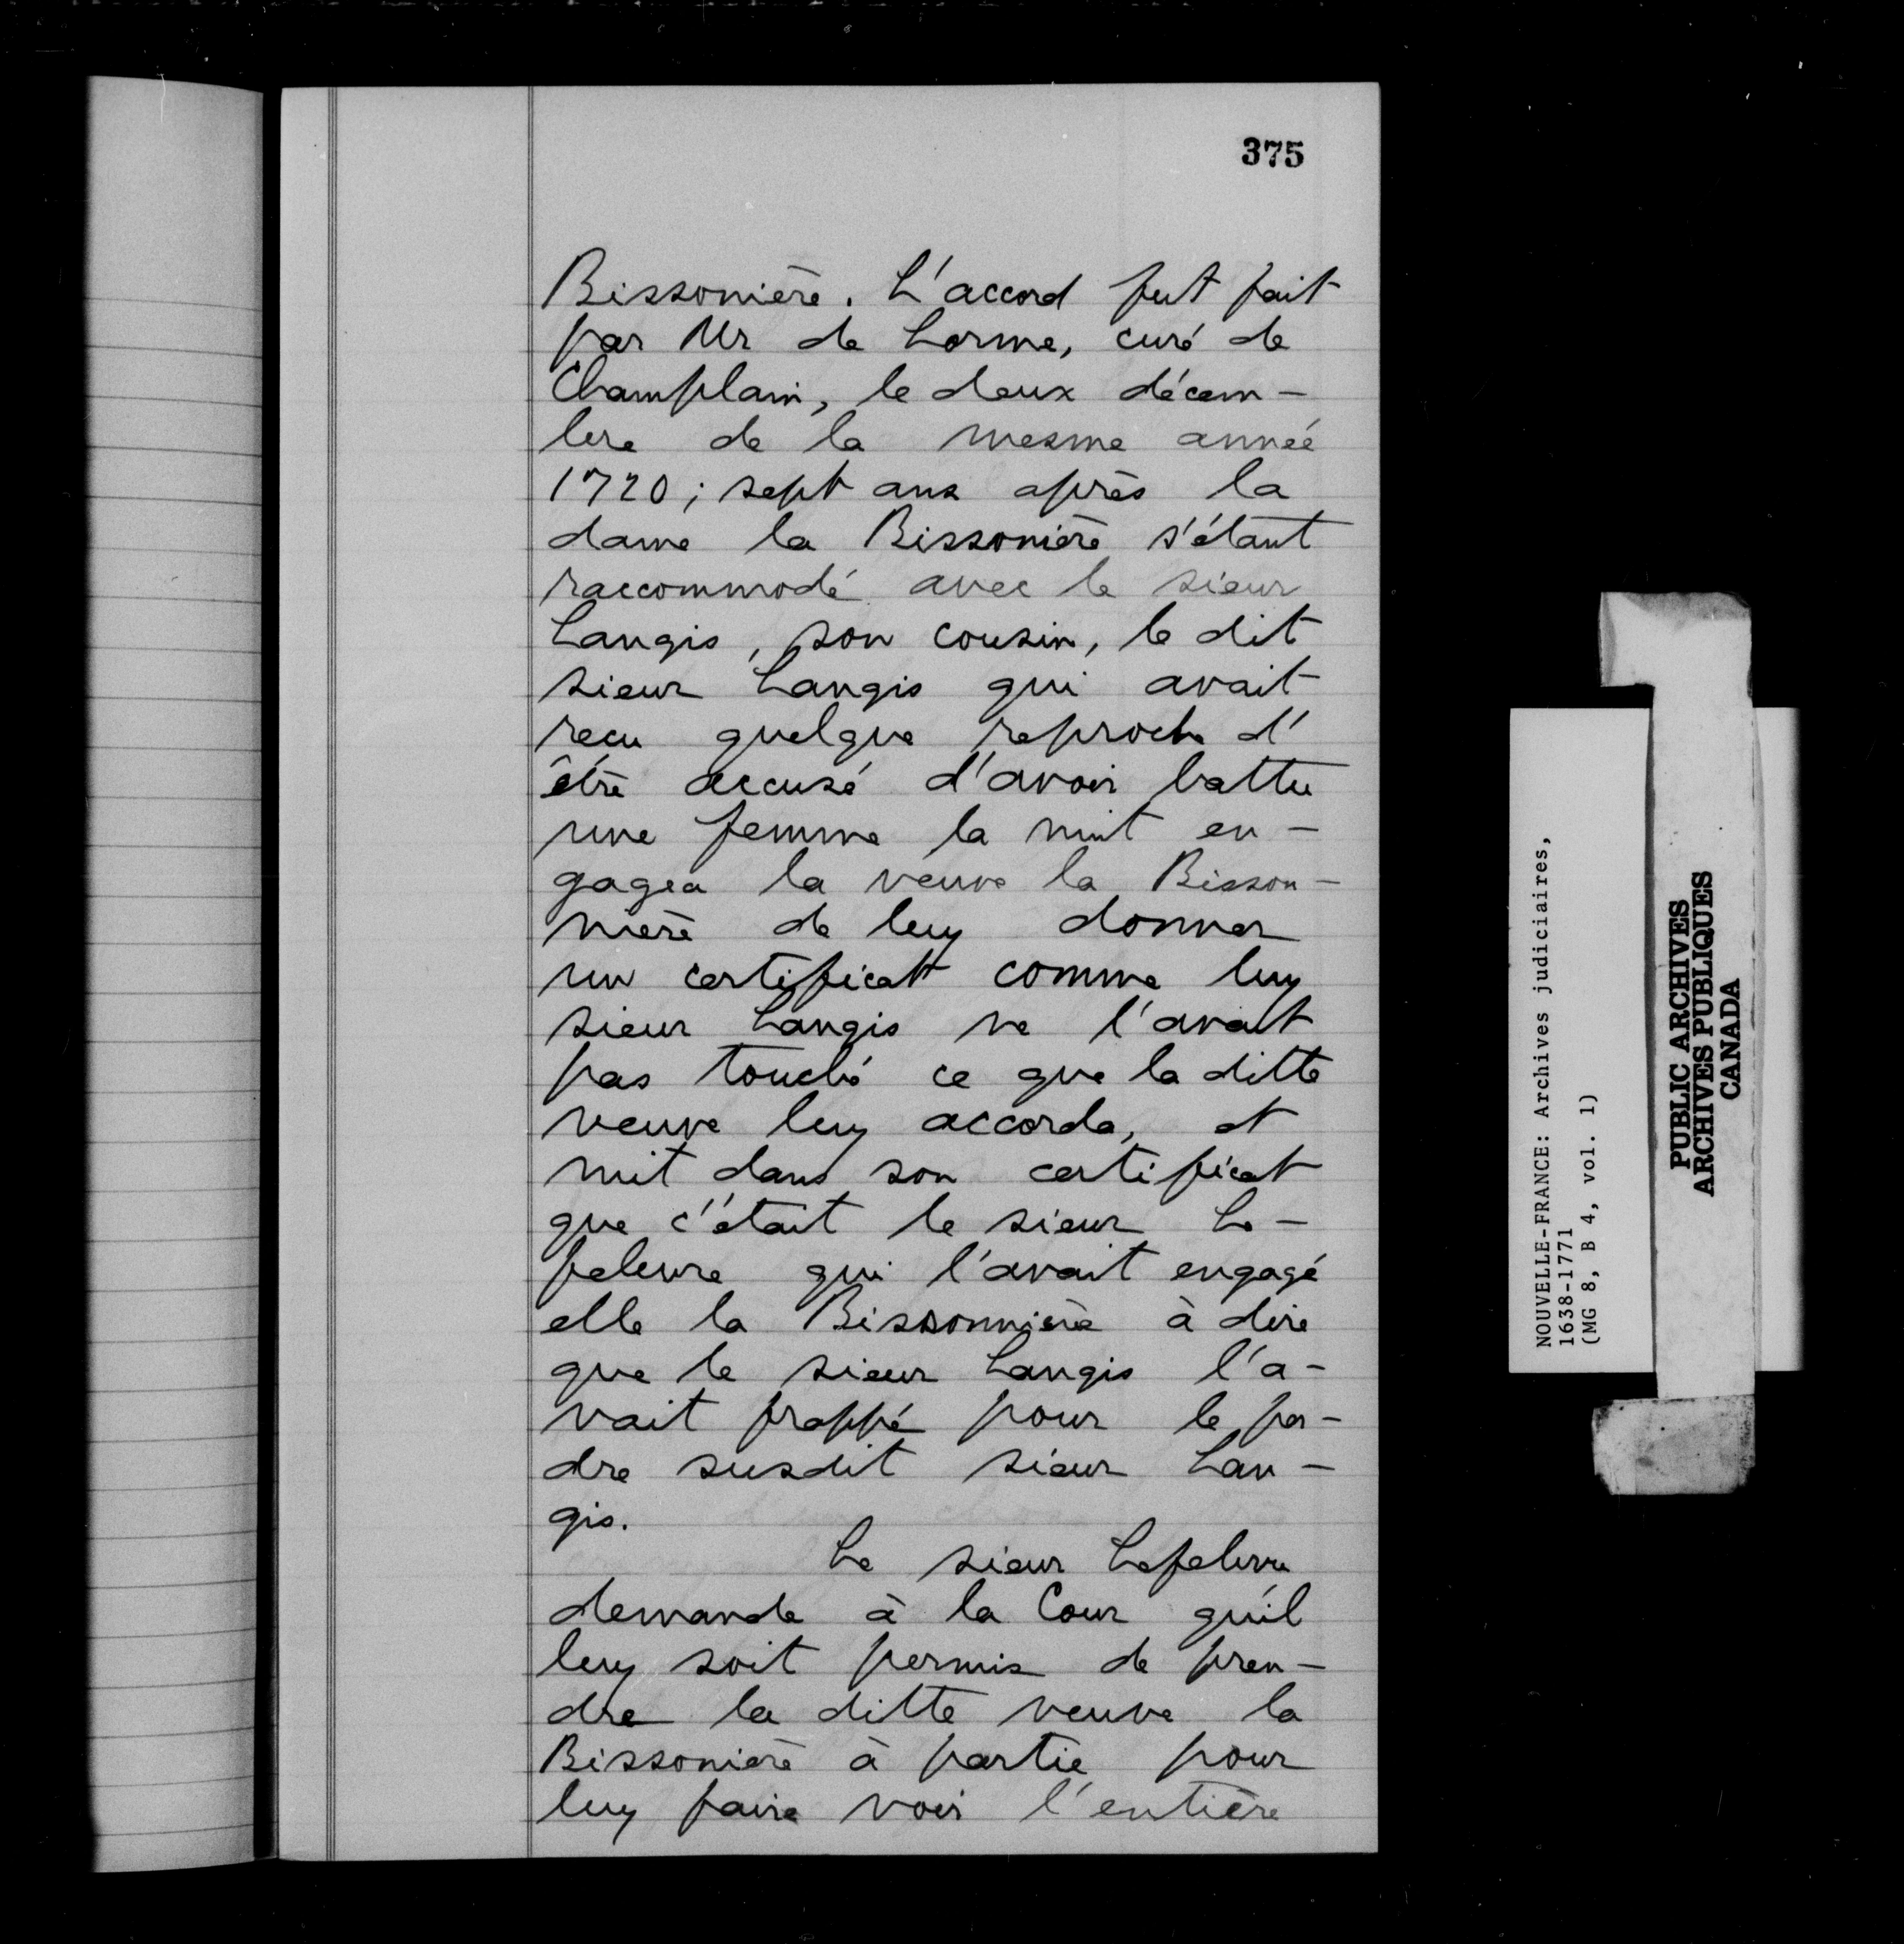 375
Bissonière. L'accord fut fait
par Mr de Lorme, curé de
Champlain, le deux décem-
bre de la mesme année
1720; sept ans après la
dame la Bissonière s'étant
raccommodé avec le sieur
Langis, son cousin, le dit
sieur Langis qui avait
reçu quelque reproche d'
être accusé d'avoir battu
une femme la nuit en-
gagea la veuve la Bisson-
nière de luy donner
un certificatt comme luy
sieur Langis ne l'avait
pas touché ce que la ditte
veuve luy accorda, et
mit dans son certificat
que c'était le sieur Le-
febvre qui l'avait engagé
elle la Bissonnière à dire
que le sieur Langis l'a-
vait frappé pour le per-
dre susdit sieur Lan-
gis.
Le sieur Lefebvre
demande à la Cour qu'il
luy soit permis de pren-
dre la ditte veuve la
Bissonière à partie pour
luy faire voir l'entière
NOUVELLE-FRANCE: Archives judiciaires,
1638-1771
(MG 8, B 4, vol. 1)
PUBLIC ARCHIVES
ARCHIVES PUBLIQUES
CANADA